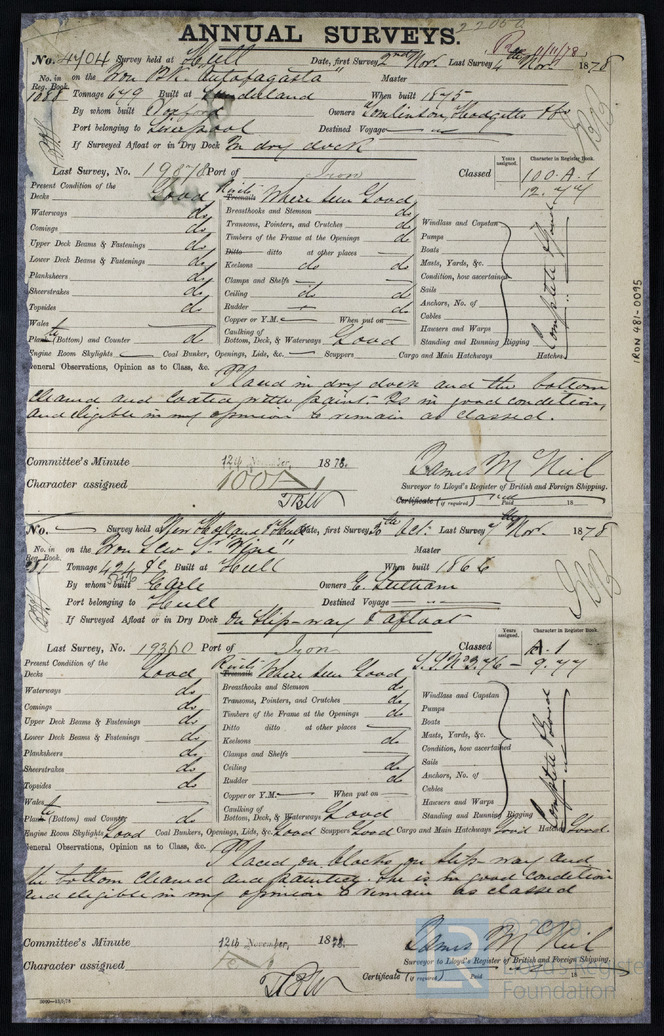 22050
ANNUAL SURVEYS.
11/11/78
No. 4704 Survey held at Hull Date, first Survey 2nd Nov. Last Survey 4th Nov. 1878
No. in Reg. Book. on the Iron Bk. "Antofagasta" Master
1088 Tonnage 649 Built at Sunderland When built 1875
By whom built Owners Tomlinson, Hodgetts &Co
Port belonging to Liverpool Destined Voyage
If Surveyed Afloat or in Dry Dock In dry dock
Last Survey, No. 19878 Port of Iron Classed Years assigned. Character in Register Book. 100.A.1
12.77
Present Condition of the Rivets
Decks Good Treenails Where seen Good
Waterways do Breasthooks and Stemson do Windlass and Capstan
Comings do Transoms, Pointers, and Crutches do Pumps
Upper Deck Beams & Fastenings do Timbers of the Frame at the Openings do Boats
Lower Deck Beams & Fastenings do Ditto ditto at other places Masts, Yards, &c.
Planksheers do Keelsons do do Condition, how ascertained
Sheerstrakes do Clamps and Shelfs Sails
Topsides do Ceiling do do Anchors, No. of
Wales Rudder do Cables
Copper or Y.M. When put on Hawsers and Warps
Plank (Bottom) and Counter do Caulking of Bottom, Deck, & Waterways Good Standing and Running Rigging
Complete & Good
Engine Room Skylights Coal Bunker, Openings, Lids, &c. Scuppers Cargo and Main Hatchways Hatches
General Observations, Opinion as to Class, &c.
Placed in dry dock and the bottom
cleaned and coated with paint. Is in good condition,
and eligible in my opinion to remain as classed.
Committee's Minute 12th November, 1878.
Character assigned 100A1
James McNeil
Surveyor to Lloyd's Register of British and Foreign Shipping.
Certificate (if required) Paid 18
No. Survey held Date, first Survey Oct. Last Survey 7th Nov. 1878
No. in Reg. Book. on the Iron Scw Sr Master
Tonnage Built at Hull When built 1866
By whom built Earle Owners
Port belonging to Hull Destined Voyage
If Surveyed Afloat or in Dry Dock On Slip-way & afloat
Last Survey, No. 19360 Port of Iron Classed Years assigned. Character in Register Book. A.1
9.77
Present Condition of the Rivets
Decks Good Treenails Where seen Good
Waterways do Breasthooks and Stemson do Windlass and Capstan
Comings do Transoms, Pointers, and Crutches do Pumps
Upper Deck Beams & Fastenings do Timbers of the Frame at the Openings do Boats
Lower Deck Beams & Fastenings do Ditto ditto at other places Masts, Yards, &c.
Planksheers do Keelsons do Condition, how ascertained
Sheerstrakes do Clamps and Shelfs Sails
Topsides do Ceiling do Anchors, No. of
Wales Rudder do Cables
Copper or Y.M. When put on Hawsers and Warps
Plank (Bottom) and Counter do Caulking of Bottom, Deck, & Waterways Good Standing and Running Rigging
Complete & Good
Engine Room Skylights Good Coal Bunkers, Openings, Lids, &c. Good Scuppers Good Cargo and Main Hatchways Good Hatches Good
General Observations, Opinion as to Class, &c.
Placed on blocks on slip-way and
the bottom cleaned and painted. She is in good condition
and eligible in my opinion to remain as classed
Committee's Minute 12th November, 1878.
Character assigned
James McNeil
Surveyor to Lloyd's Register of British and Foreign Shipping.
Certificate (if required) Paid 18
IRON 481-0095
LR
© 2019
Lloyd's Register
Foundation